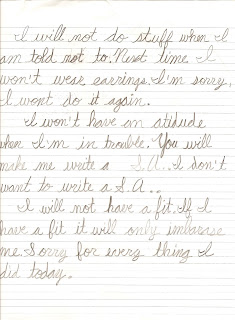 I will not do stuff when I
am told not to. Next time I
won't wear earrings. I'm sorry,
I wont do it again.
I won't have an atidude
when I'm in trouble. You will
make me write a S.A.. I don't
want to write a S.A..
I will not have a fit. If I
have a fit it will only embarase
me. Sorry for every thing I
did today.